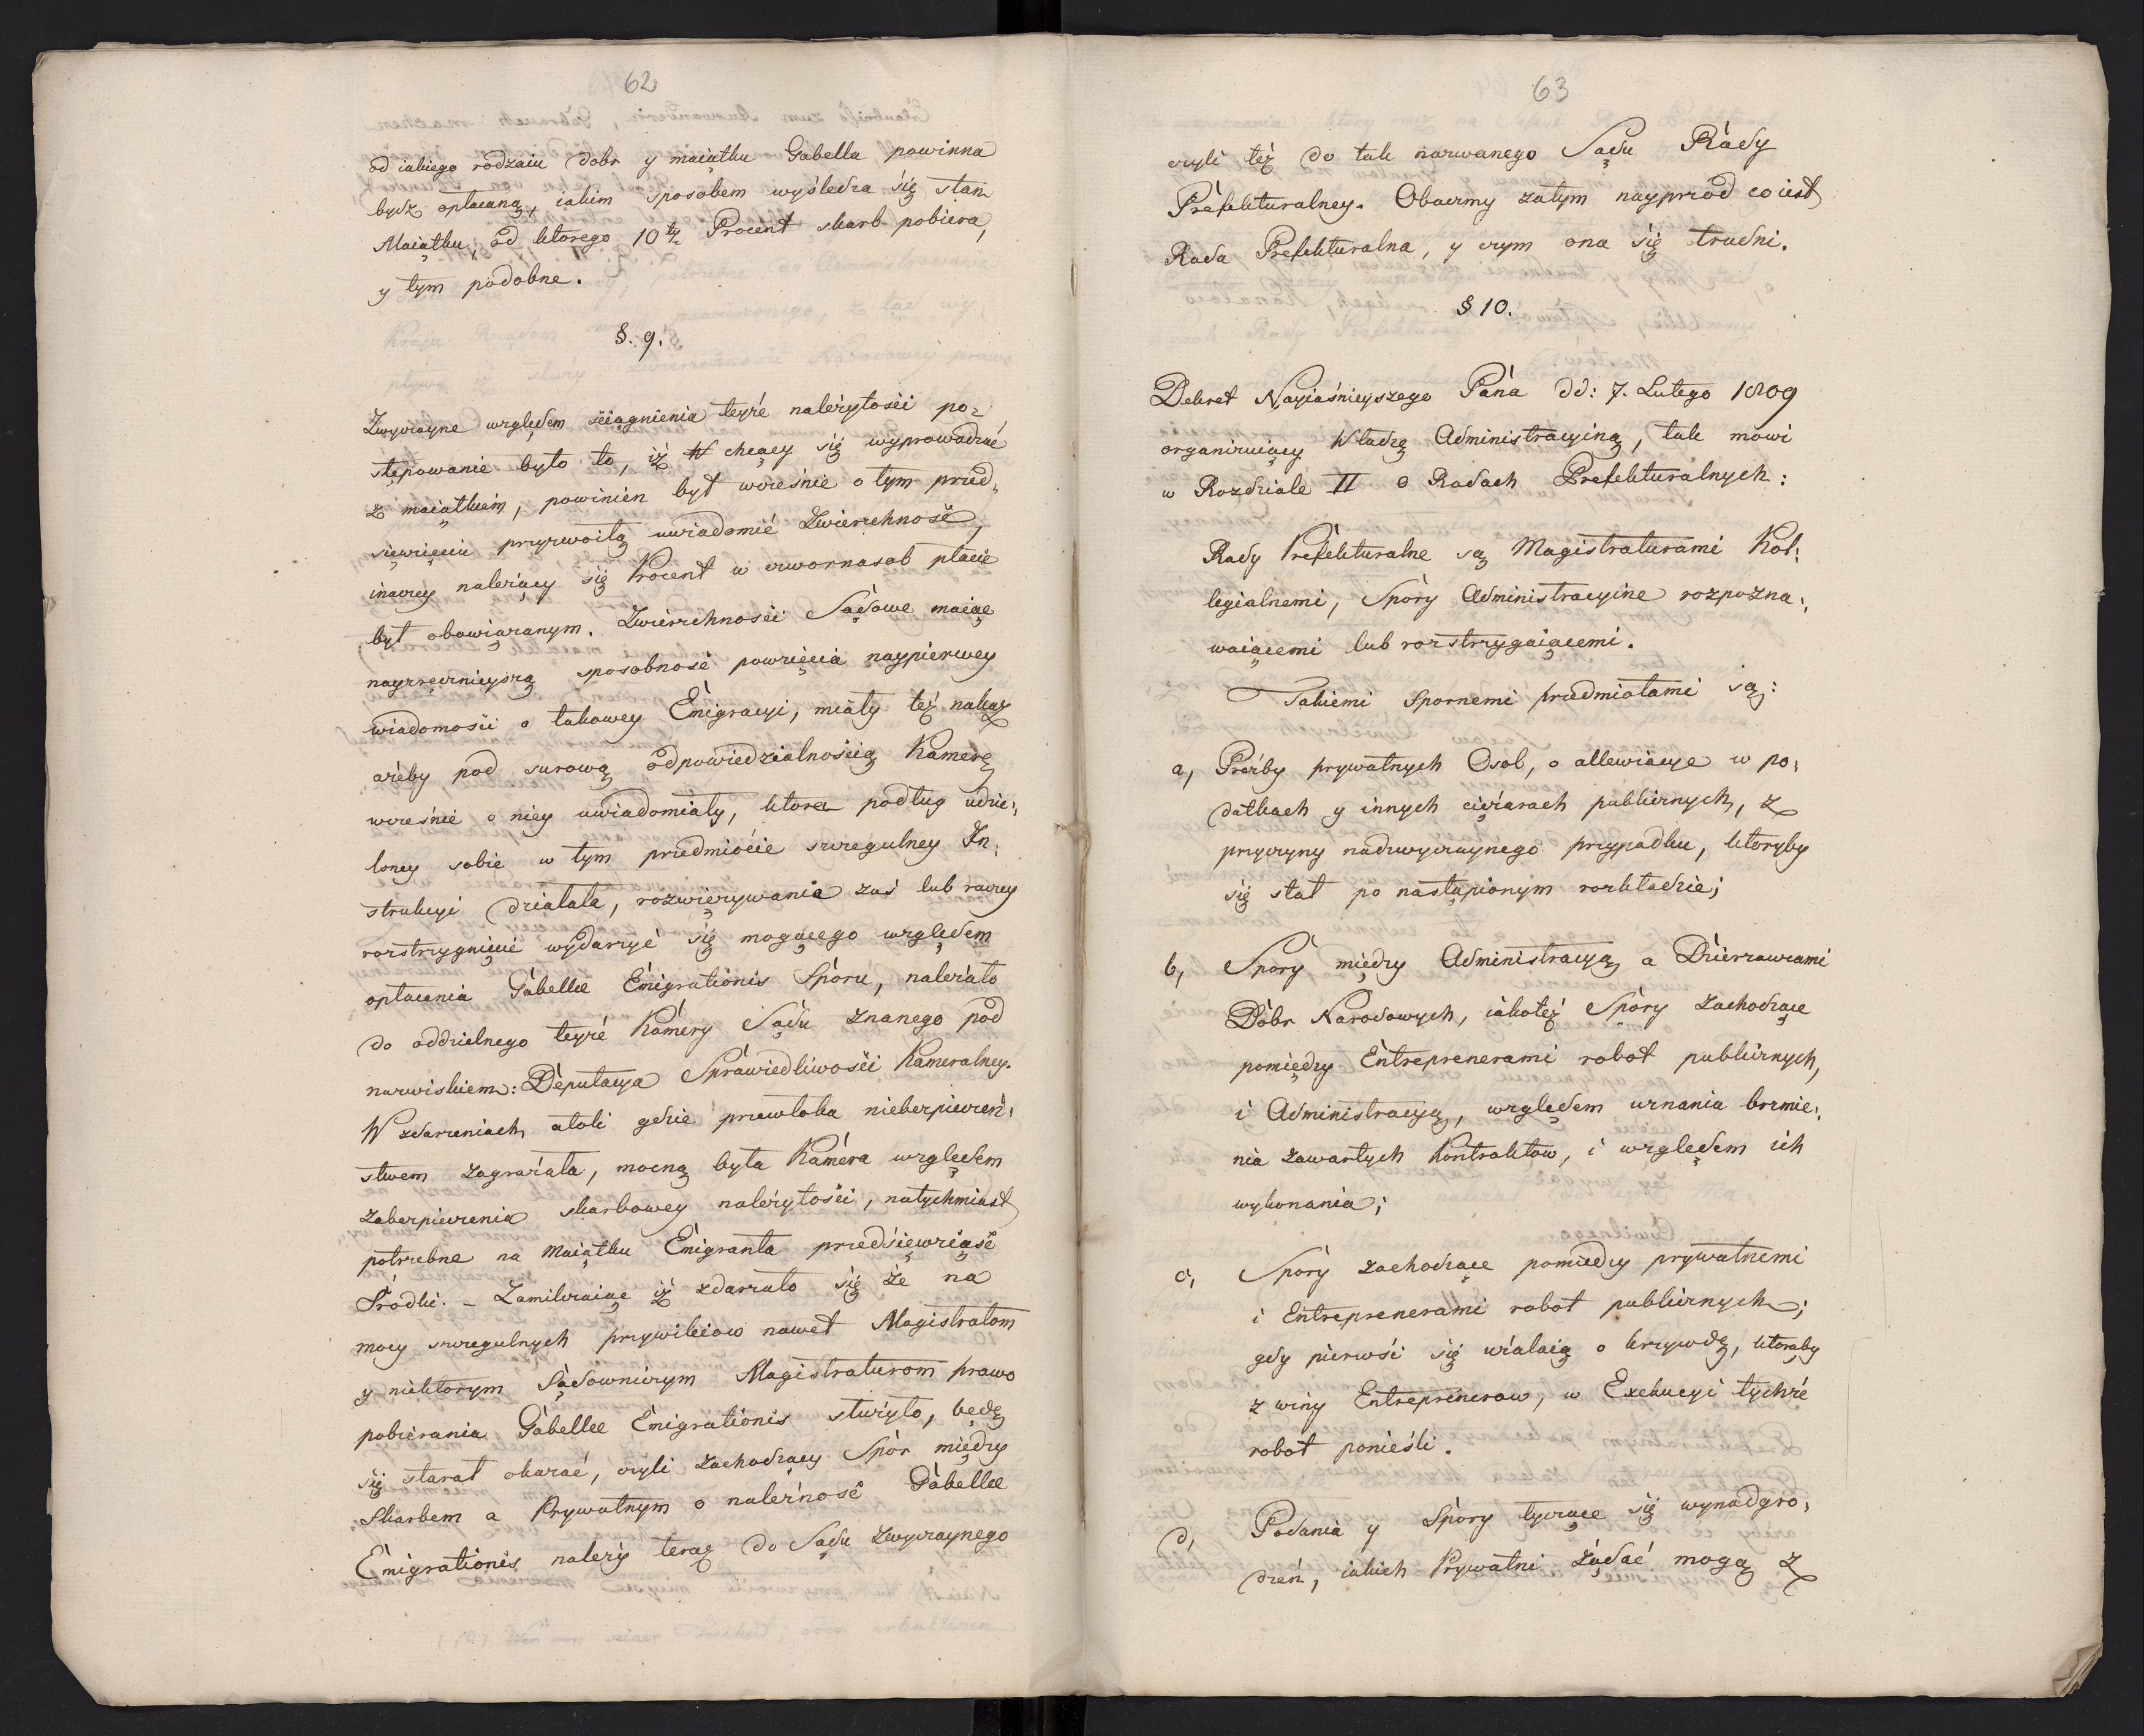 62
od iakiego rodzaiu dobr y maiątku Gabella powinna
bydź opłacaną, iakim sposobem wyśledza się stan
Maiątku od ktorego 10ty Procent skarb pobiera,
y tym podobne.
§. 9.
Zwyczayne względem ściągnienia teyże należytości po=
stępowanie było to, iż chcący się wyprowadzać
z maiątkiem, powinien był wcześnie o tym przed=
sięwzięciu przyzwoitą uwiadomić Zwierzchność,
inaczey należący się Procent w czwornasob płacić
był obowiązanym. Zwierzchności Sądowe maiąc
nayzręcznieyszą sposobność powzięcia naypierwey
wiadomości o takowey Emigracyi, miały też nakaz
ażeby pod surową odpowiedzialnością Kamerę
wcześnie o niey uwiadomiały, ktora podług udzie=
loney sobie w tym przedmiocie szczegulney In=
strukcyi działała, rozwięzywania zaś lub raczey
rozstrzygnięcie wydarzyć się mogącego względem
opłacenia Gabellæ Emigrationis Sporu, należało
do oddzielnego teyże Kamery Sądu znanego pod
nazwiskiem: Deputacya Sprawiedliwości Kameralney.
W zdarzeniach atoli gdzie przewłoka niebezpieczeń=
stwem zagrażała, mocną była Kamera względem
Zabezpieczenia skarbowey należytości, natychmiast
potrzebne na Maiątku Emigranta przedsięwziąść
Srodki. – Zamilczaiąc iż zdarzało się że na
mocy szczegulnych przywileiow nawet Magistratom
y niektorym Sądowniczym Magistraturom prawo
pobierania Gabellæ Emigrationis służyło, będę
się starał okazać, czyli zachodzący Spór między
Skarbem a Prywatnym o należność Gabellæ
Emigrationis należy teraz do Sądu Zwyczaynego
63
czyli też do tak nazwanego Sądu Rady
Prefekturalney. Obaczmy zatym nayprzod co iest
Rada Prefekturalna, y czym ona się trudni.
§ 10.
Dekret Nayiaśnieyszego Pána dd: 7. Lutego 1809
organizuiący Władzę Administracyiną, tak mowi
w Rozdziale II o Radach Prefekturalnych:
Rady Prefekturalne są Magistraturami Kol=
legialnemi, Spory Administracyine rozpozna=
waiącemi lub rozstrzygaiącemi.
Takiemi Spornemi przedmiotami są:
a, Proźby prywatnych Osób, o allewiacye w po=
datkach y innych ciężarach publicznych, z
przyczyny nadzwyczaynego przypadku, ktoryby
się stał po nastąpionym rozkładzie;
b, Spory między Administracyą a Dzierzawcami
Dóbr Narodowych, iakoteż Spory zachodzące
pomiędzy Entreprenerami robot publicznych,
i Administracyą, względem uznania brzmie=
nia zawartych Kontraktow, i względem ich
wykonania;
c, Spory zachodzące pomiedzy prywatnemi
i Entreprenerami robot publicznych;
gdy pierwsi się użalaią o krzywdę, ktorąby
z winy Entreprenerow, w Exekucyi tychże
robot ponieśli.
d, Podania y Spory tyczące się wynadgro=
dzeń, iakich Prywatni żądać mogą z